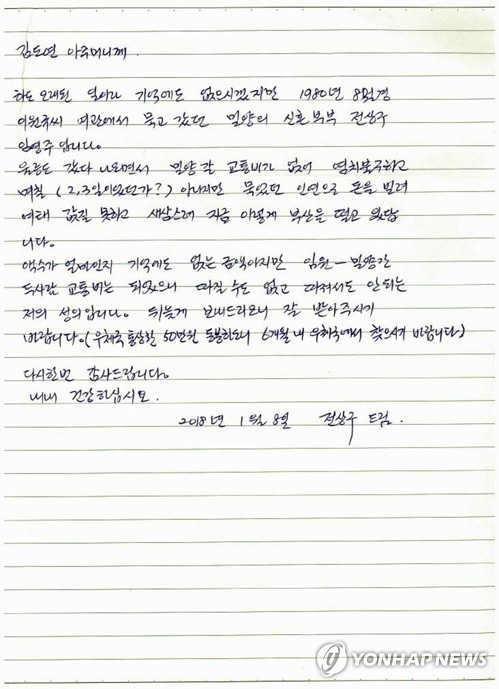 김도연 아주머니께.
하도 오래된 일이라 기억에도 없으시겠지만 1980년 8월경
이원주씨 여관에서 묵고 갔던 밀양의 신혼부부 전상구
임영주입니다.
울릉도 갔다 나오면서 밀양 갈 교통비가 없어 염치불구하고
며칠 (2, 3일이었던가?) 아니지만 묵었던 인연으로 돈을 빌려
여태 갚질 못하고 새삼스레 지금 이렇게 부산을 떨고 있답
니다.
액수가 얼마인지 기억에도 없는 금액이지만 임원-밀양간
두사람 교통비는 되었으니 따질 수도 없고 따져서도 안 되는
저의 성의입니다. 뒤늦게 보내드리오니 잘 받아주시기
바랍니다. (우체국 통상환 50만원 동봉하오니 6개월 내 우체국에서 찾으시기 바랍니다)
다시한번 감사드립니다.
내내 건강하십시오.
2018년 1월 8일 전상구 드림.
YONHAP NEWS